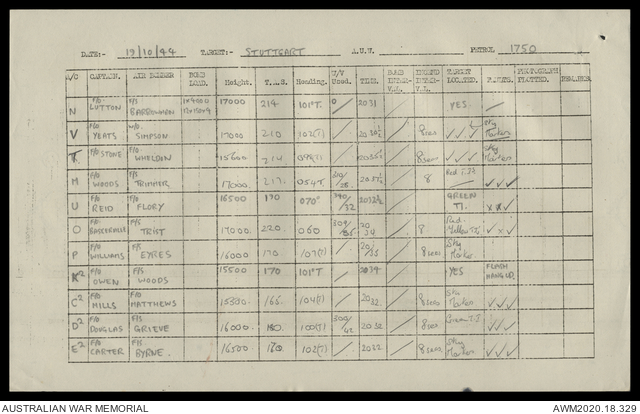 DATE:- 19/10/44 TARGET:- STUTTGART A.U.W. PETROL 1750
A/C CAPTAIN. AIR BOMBER BOMB LOAD. Height. T.A.S. Heading. W/V Used. TIME. TARGET LOCATED. RESULTS. PHOTOGRAPH PLOTTED. REMARKS.
N F/O LUTTON F/S BARROWMAN 1x4000 17000 214 101°T. 0 2031 YES
V F/O YEATS W/O SIMPSON 17000 210 102(T) 8secs ✓ ✓ ✓ Sky Markers
T F/O STONE WHELDON 15600 214 8secs ✓ ✓ ✓ Sky Markers
M F/O WOODS F/S TRIMMER 17000 217 054T. 8 Red T.I's ✓ ✓ ✓
U F/O REID F/O FLORY 16500 190 070° 340/32 2032½ GREEN T.I. x x ✓
O F/O BASKERVILLE F/S TRIST 17000 220 060 20 34 8 Red Yellow T.I's ✓ x ✓
P F/O WILLIAMS F/S EYRES 16000 170 107(T) 20/35 8secs Sky Marker
K² F/O OWEN F/S WOODS 15500 170 101°T 2034 YES FLASH HANG UP.
C² F/O MILLS F/O MATTHEWS 15300 166 104(T) 2032 8secs Sky Markers ✓ ✓ ✓
D² F/O DOUGLAS F/S GRIEVE 16000 180 100(T) 300/42 2032 8secs Green T.I ✓ ✓ ✓
E² F/O CARTER F/S BYRNE. 16500 170 102(T) 2032 8secs Sky Markers ✓ ✓ ✓
AUSTRALIAN WAR MEMORIAL AWM2020.18.329